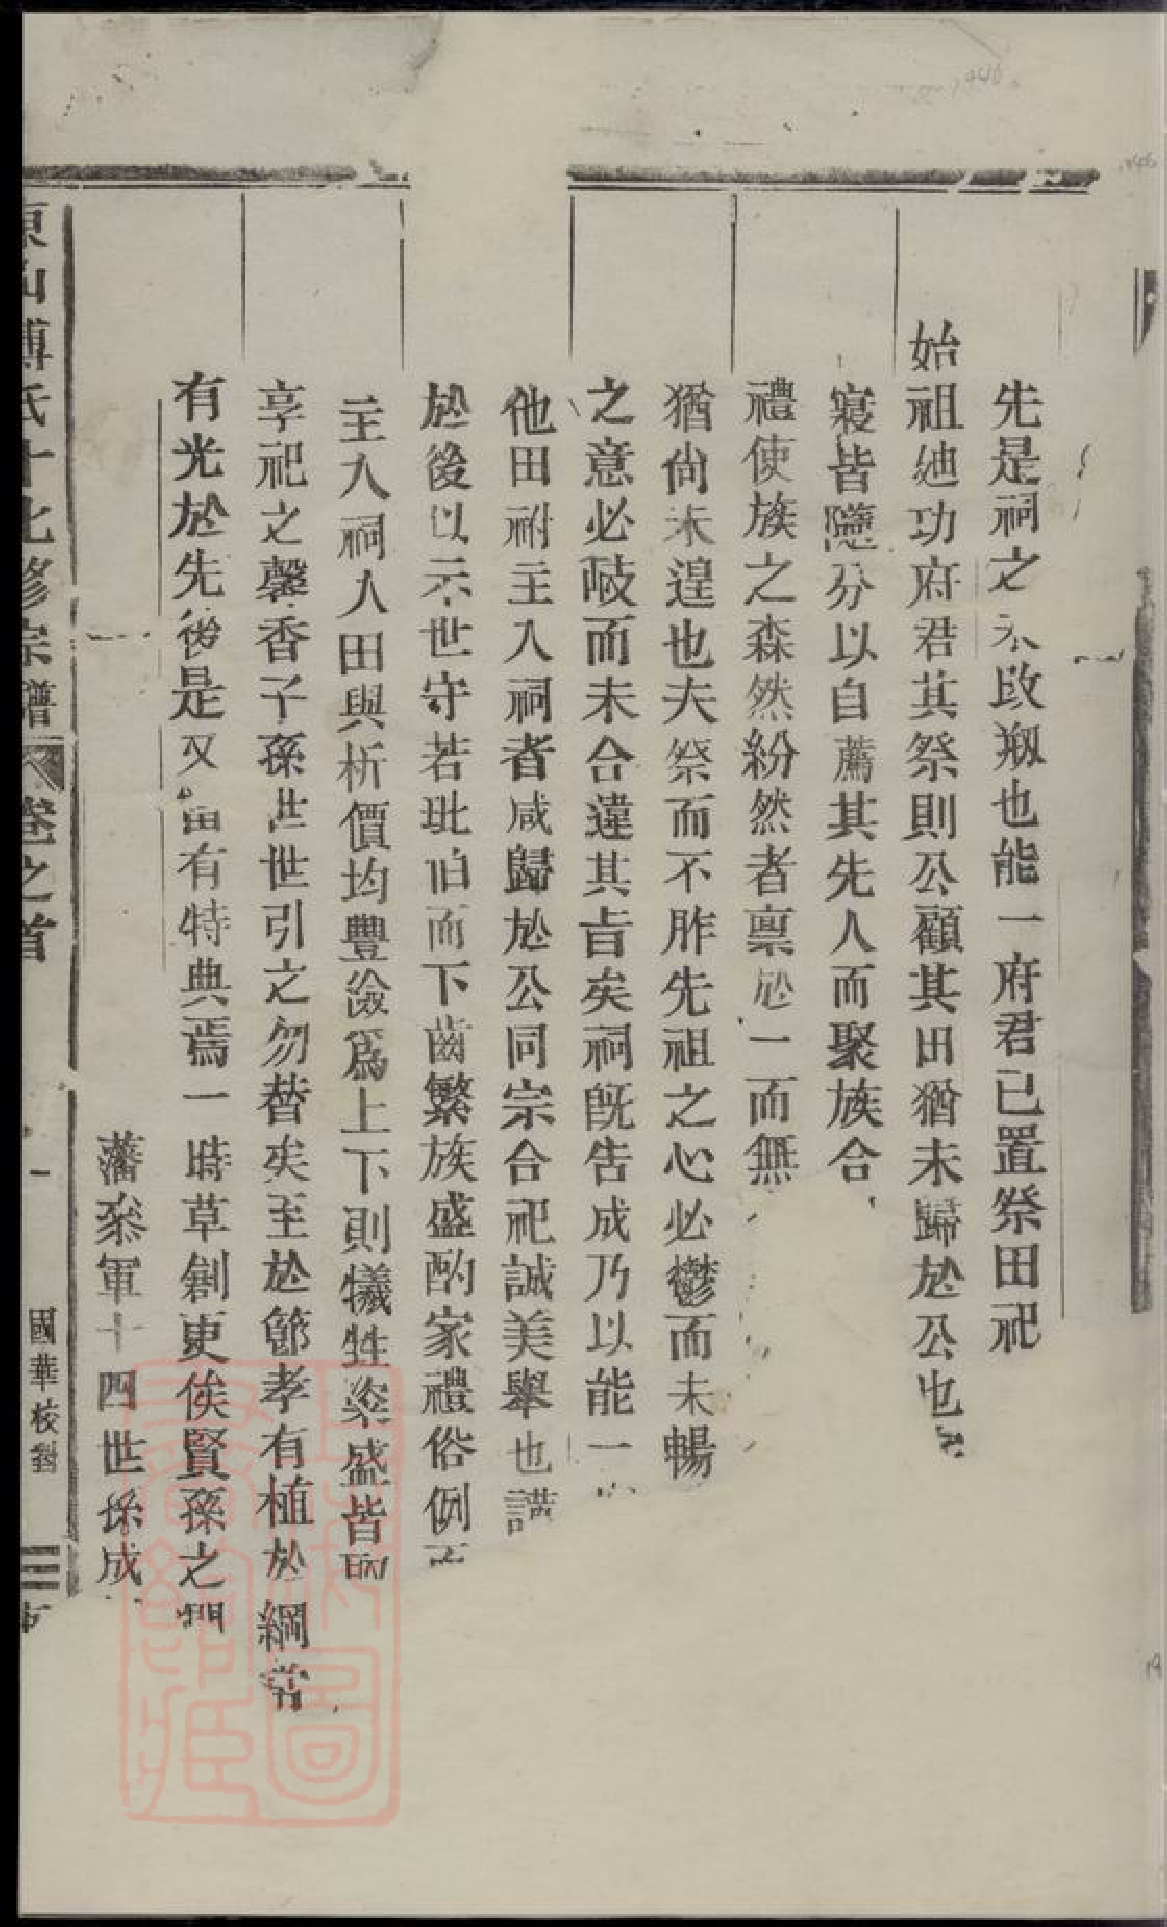 先是祠之未改剏也能一府君已置祭田祀
始祖廸功府君其祭則公顧其田猶未歸於公也
寢皆隱分以自薦其先人而聚族合
禮使族之森然紛然者禀於一而無
猶尚未遑也夫祭而不胙先祖之心必鬱而未暢
之意必歧而未合違其旨矣祠旣告成乃以能一
他田祔主入祠者咸歸於公同宗合祀誠美舉也謹
於後以示世守若玭伯而下齒繁族盛酌家禮俗例
主入祠人田與析價均豐儉爲上下則犧牲粢盛皆取
享祀之馨香子孫世世引之勿替矣至於節孝有植於綱常
有光於先後是又當有特典焉一時草創更俟賢孫之
藩叅軍十四世孫成
東山傅氏十七修宗譜 卷之首 一 國華校對